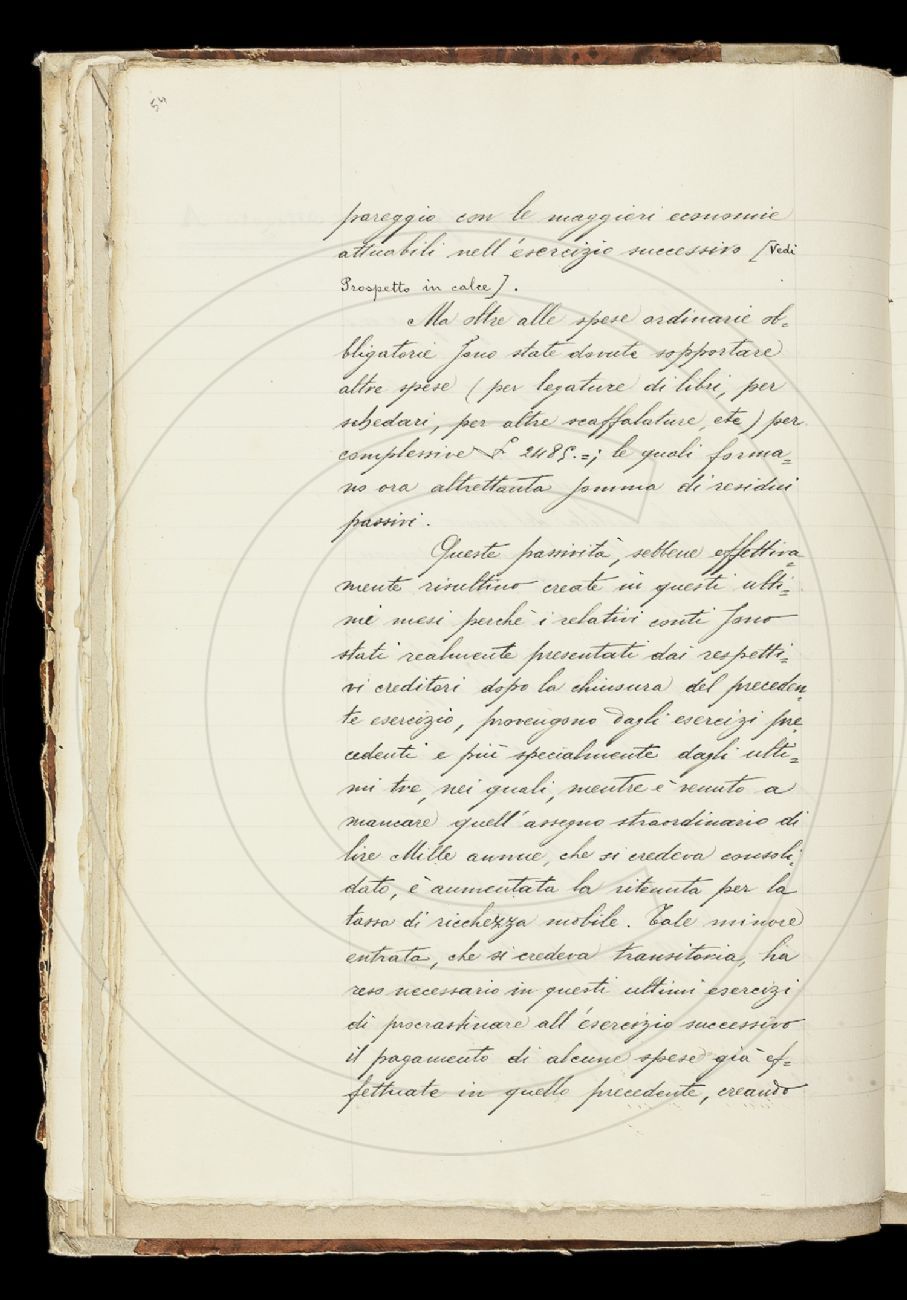 54
pareggio con le maggiori economie
attuabili nell'esercizio successivo [Vedi
Prospetto in calce].
Ma oltre alle spese ordinarie ob=
bligatorie sono state dovute sopportare
altre spese (per legature di libri, per
schedari, per altre scaffalature, etc) per
complessive £ 2485.=; le quali forma=
no ora altrettanta somma di residui
passivi.
Queste passività, sebbene effettiva=
mente risultino create in questi ulti=
mi mesi perchè i relativi conti sono
stati realmente presentati dai respetti=
vi creditori dopo la chiusura del preceden=
te esercizio, provengono dagli esercizi pre
cedenti e più specialmente dagli ulti=
mi tre, nei quali, mentre è venuto a
mancare quell'assegno straordinario di
lire Mille annue, che si credeva consoli=
dato, è aumentata la ritenuta per la
tassa di ricchezza mobile. Tale minore
entrata, che si credeva transitoria, ha
reso necessario in questi ultimi esercizi
di procrastinare all'esercizio successivo
il pagamento di alcune spese già ef=
fettuate in quello precedente, creando